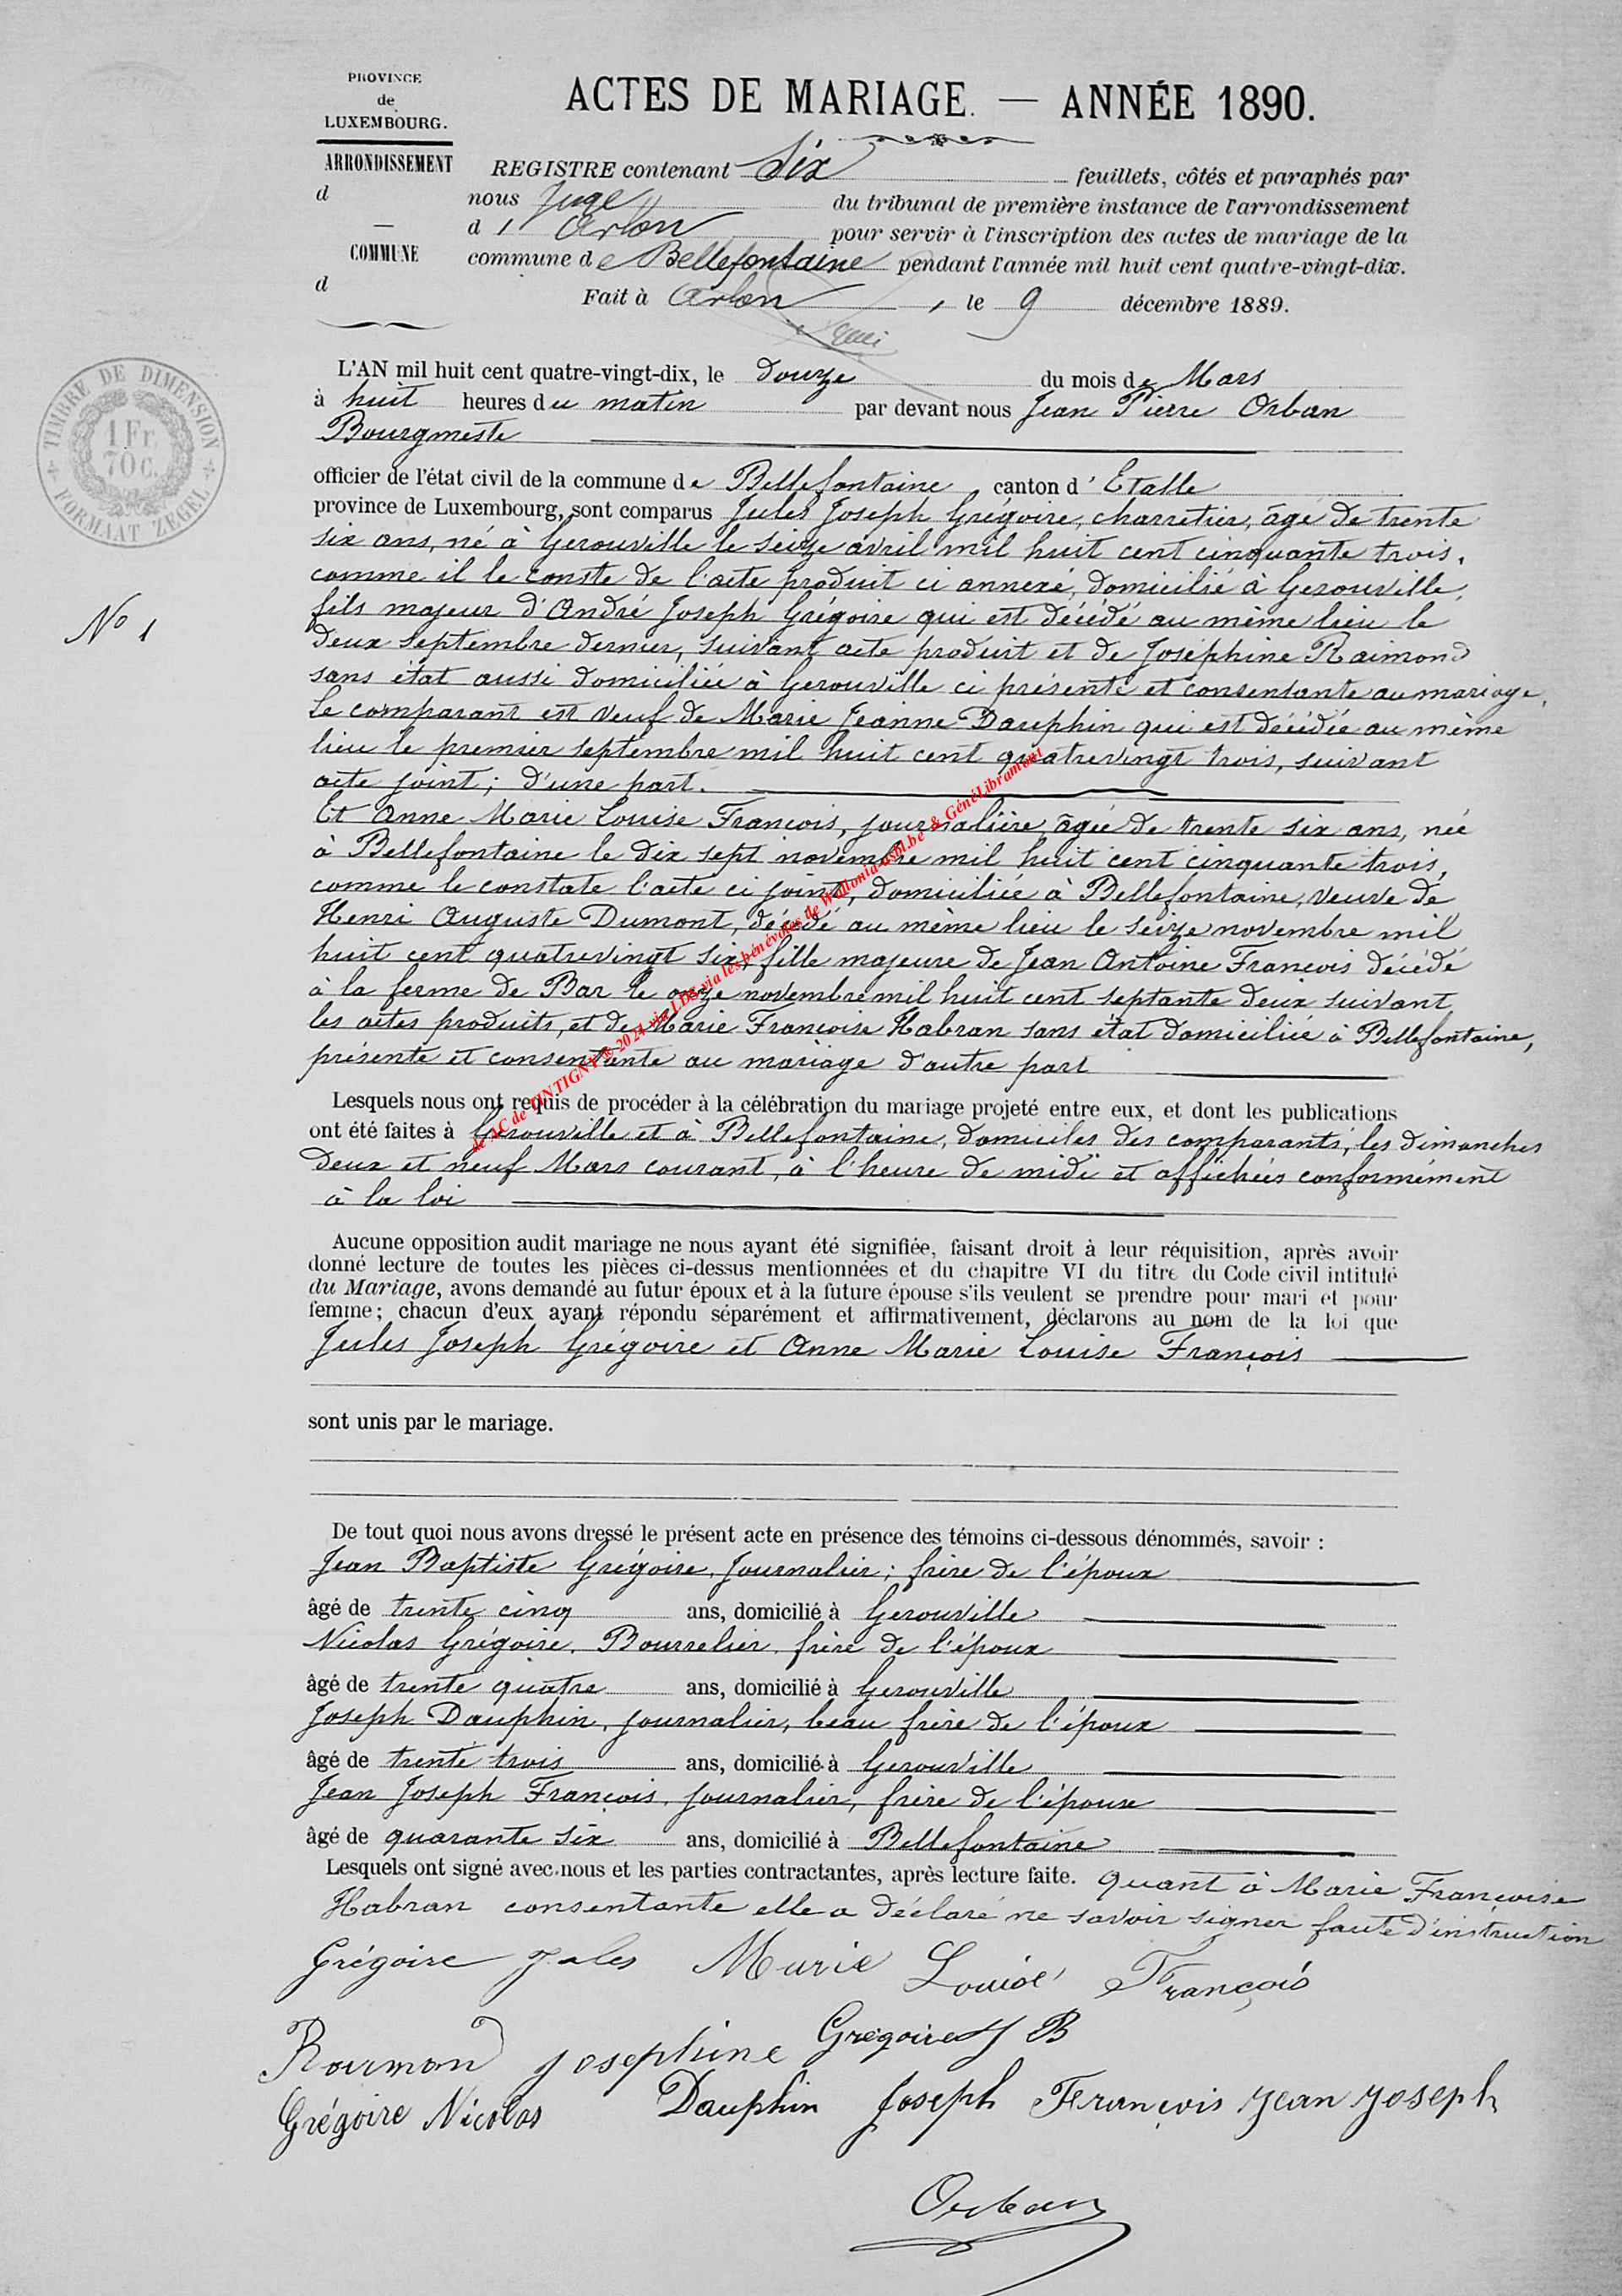 PROVINCE
de
LUXEMBOURG.
ARRONDISSEMENT
d
COMMUNE
d
ACTES DE MARIAGE. — ANNÉE 1890.
REGISTRE contenant Six feuillets, côtés et paraphés par
nous Juge du tribunal de première instance de l'arrondissement
d'Arlon pour servir à l'inscription des actes de mariage de la
commune de Bellefontaine pendant l'année mil huit cent quatre-vingt-dix.
Fait à Arlon, le 9 décembre 1889.
TIMBRE DE DIMENSION
1 Fr.
70 C.
FORMAAT ZEGEL
L'AN mil huit cent quatre-vingt-dix, le douze du mois de Mars
à huit heures du matin par devant nous Jean Pierre Orban
Bourgmeste
officier de l'état civil de la commune de Bellefontaine canton d'Etalle
province de Luxembourg, sont comparus Jules Joseph Grégoire, charretier, âgé de trente
six ans, né à Gerouville le seize avril mil huit cent cinquante trois,
comme il le conste de l'acte produit ci annexé, domicilié à Gerouville,
N° 1
fils majeur d'André Joseph Grégoire qui est décédé au même lieu le
deux septembre dernier, suivant acte produit et de Joséphine Raimond
sans état aussi domiciliée à Gerouville ci présente et consentante au mariage.
Le comparant est veuf de Marie Jeanne Dauphin qui est décédée au même
lieu le premier septembre mil huit cent quatrevingt trois, suivant
acte joint; d'une part.
Et Anne Marie Louise François, journalière, âgée de trente six ans, née
à Bellefontaine le dix sept novembre mil huit cent cinquante trois,
comme le constate l'acte ci joint, domiciliée à Bellefontaine, veuve de
Henri Auguste Dumont, décédé au même lieu le seize novembre mil
huit cent quatrevingt six, fille majeure de Jean Antoine François décédé
à la ferme de Bar le onze novembre mil huit cent septante deux suivant
les actes produits, et de Marie Françoise Habran sans état domiciliée à Bellefontaine,
présente et consentante au mariage d'autre part
de AC de TINTIGNY de 2024 via LDS via les bénévoles de Wallonia-asbl.be & GénéLibramont
Lesquels nous ont requis de procéder à la célébration du mariage projeté entre eux, et dont les publications
ont été faites à Gerouville et à Bellefontaine, domiciles des comparants, les dimanches
deux et neuf Mars courant, à l'heure de midi et affichées conformément
à la loi
Aucune opposition audit mariage ne nous ayant été signifiée, faisant droit à leur réquisition, après avoir
donné lecture de toutes les pièces ci-dessus mentionnées et du chapitre VI du titre du Code civil intitulé
du Mariage, avons demandé au futur époux et à la future épouse s'ils veulent se prendre pour mari et pour
femme; chacun d'eux ayant répondu séparément et affirmativement, déclarons au nom de la loi que
Jules Joseph Grégoire et Anne Marie Louise François
sont unis par le mariage.
De tout quoi nous avons dressé le présent acte en présence des témoins ci-dessous dénommés, savoir :
Jean Baptiste Grégoire, Journalier; frère de l'époux
âgé de trente cinq ans, domicilié à Gerouville
Nicolas Grégoire, Bourrelier, frère de l'époux
âgé de trente quatre ans, domicilié à Gerouville
Joseph Dauphin, journalier, beau frère de l'époux
âgé de trente trois ans, domicilié à Gerouville
Jean Joseph François, journalier, frère de l'épouse
âgé de quarante six ans, domicilié à Bellefontaine
Lesquels ont signé avec nous et les parties contractantes, après lecture faite. Quant à Marie Françoise
Habran consentante elle a déclaré ne savoir signer faute d'instruction
Grégoire Jules Marie Louise François
Raimond josephine Grégoire J B
Grégoire Nicolas Dauphin Joseph François Jean Joseph
Orban